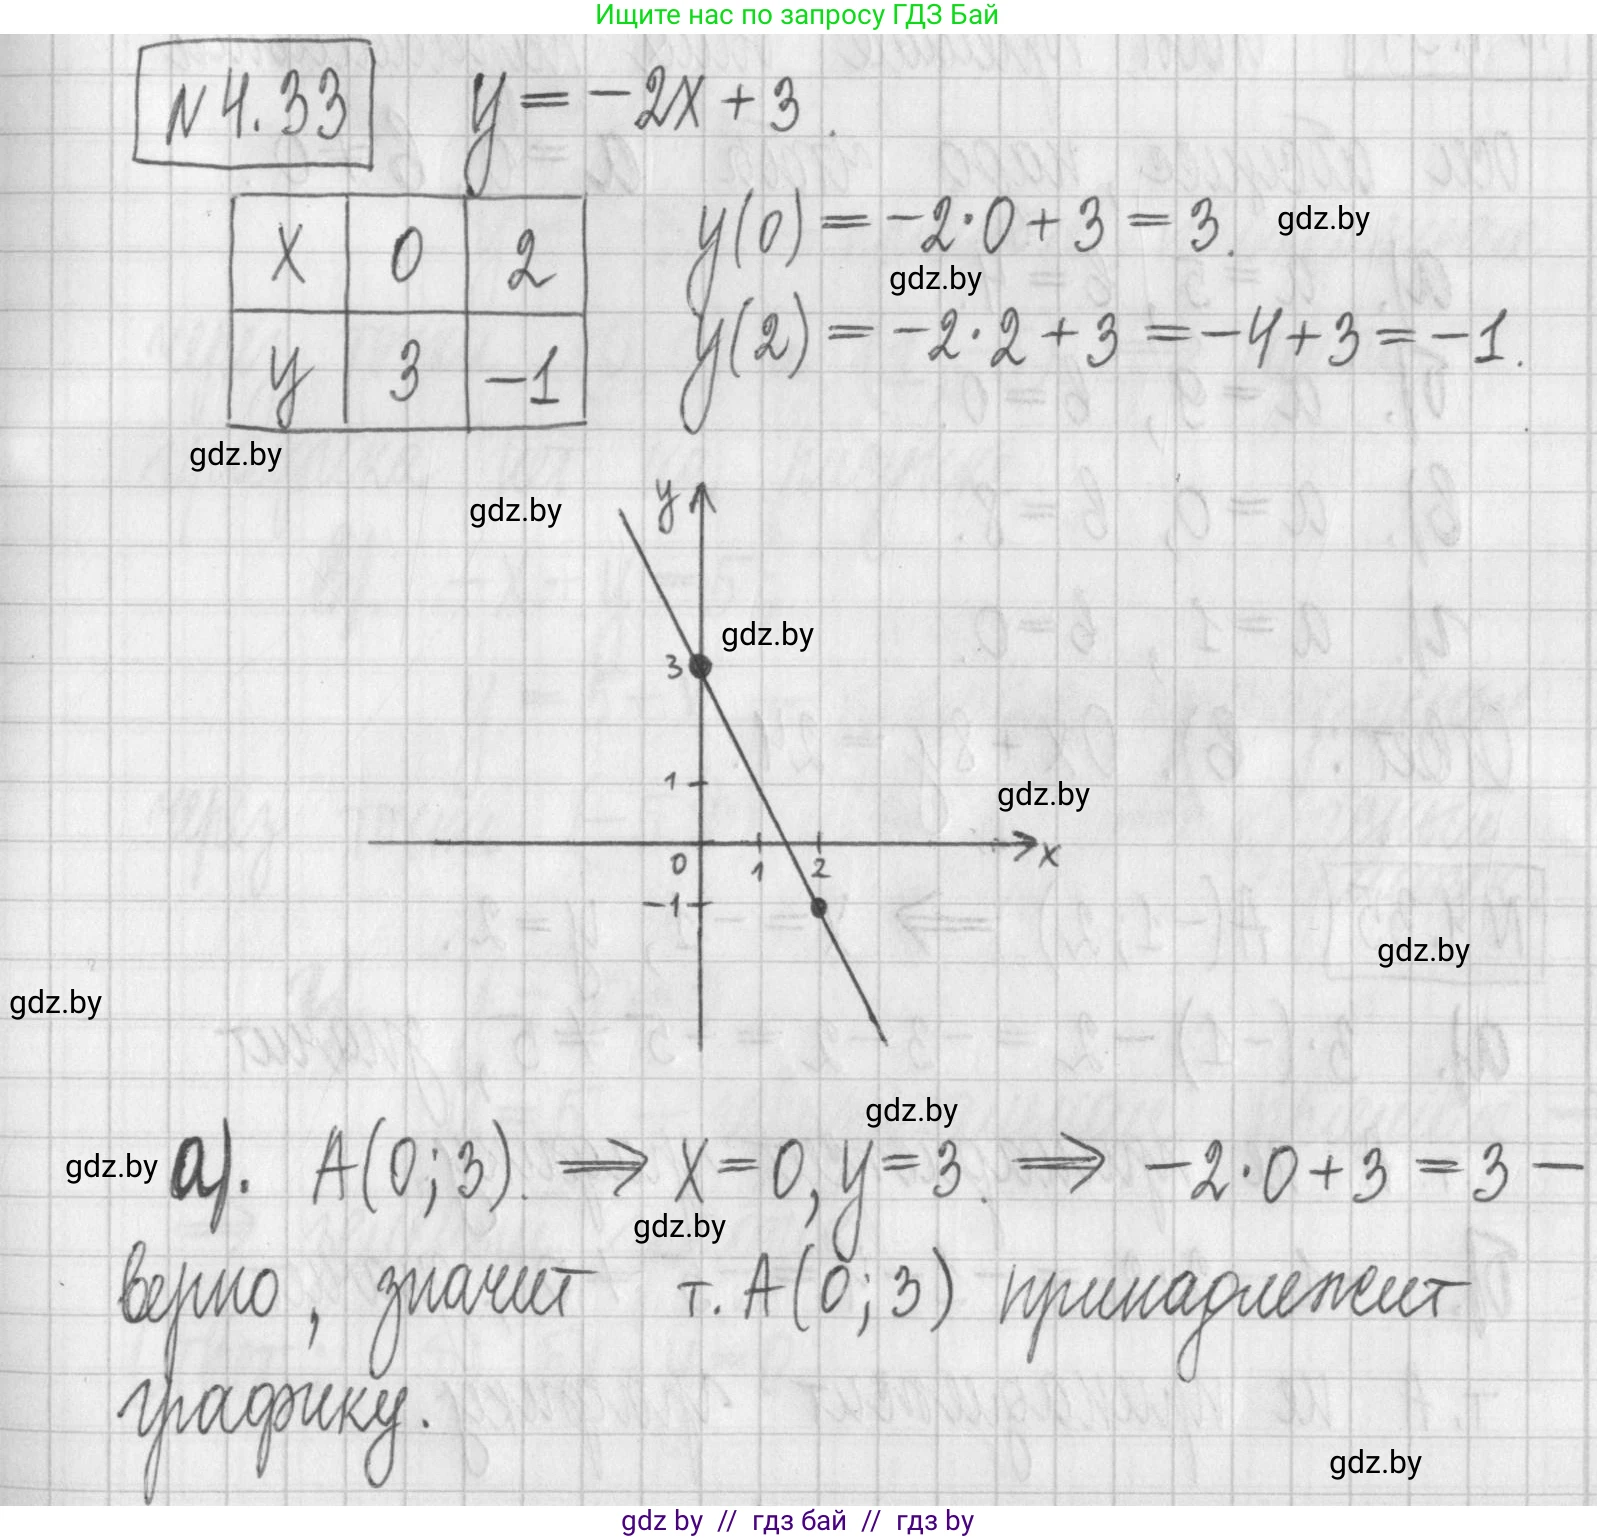 Ищите нас по запросу ГДЗ Бай
№ 4.33 y = -2x + 3.
x 0 2
y 3 -1
y(0) = -2·0 + 3 = 3. gdz.by
gdz.by
y(2) = -2·2 + 3 = -4 + 3 = -1.
gdz.by
gdz.by
y
gdz.by
3
1
gdz.by
0 1 2 x
-1
gdz.by
gdz.by
gdz.by
gdz.by а). A(0; 3). ⇒ x = 0, y = 3. ⇒ -2·0 + 3 = 3 -
gdz.by
верно, значит т. A(0; 3) принадлежит
графику.
gdz.by
gdz by // гдз бай // гдз by